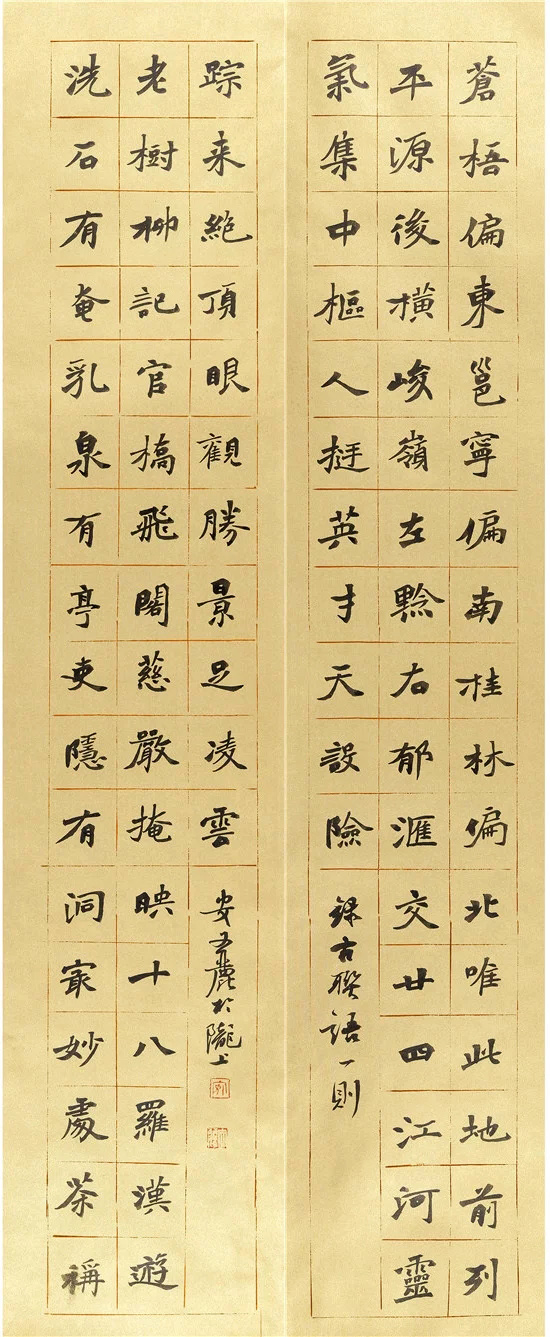 蒼梧偏東邕寧偏南桂林偏北唯此地前列
平源後橫峻嶺左黔右郁滙交廿四江河靈
氣集中樞人挺英才天設險
錄古聯語一則
洗石有奄乳泉有亭吏隱有洞㝡妙處茶稱
老樹柳記官橋飛閣慈嚴掩映十八羅漢遊
踪来絶頂眼觀勝景足凌雲
安麗於隴上